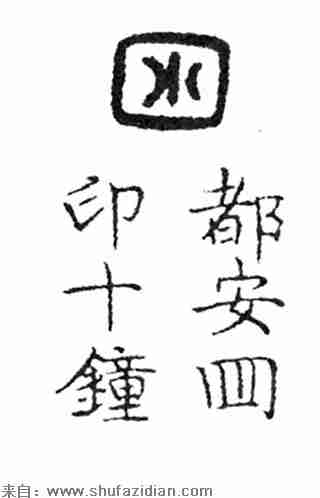 都安四
印十鐘
来自：www.shufazidian.com